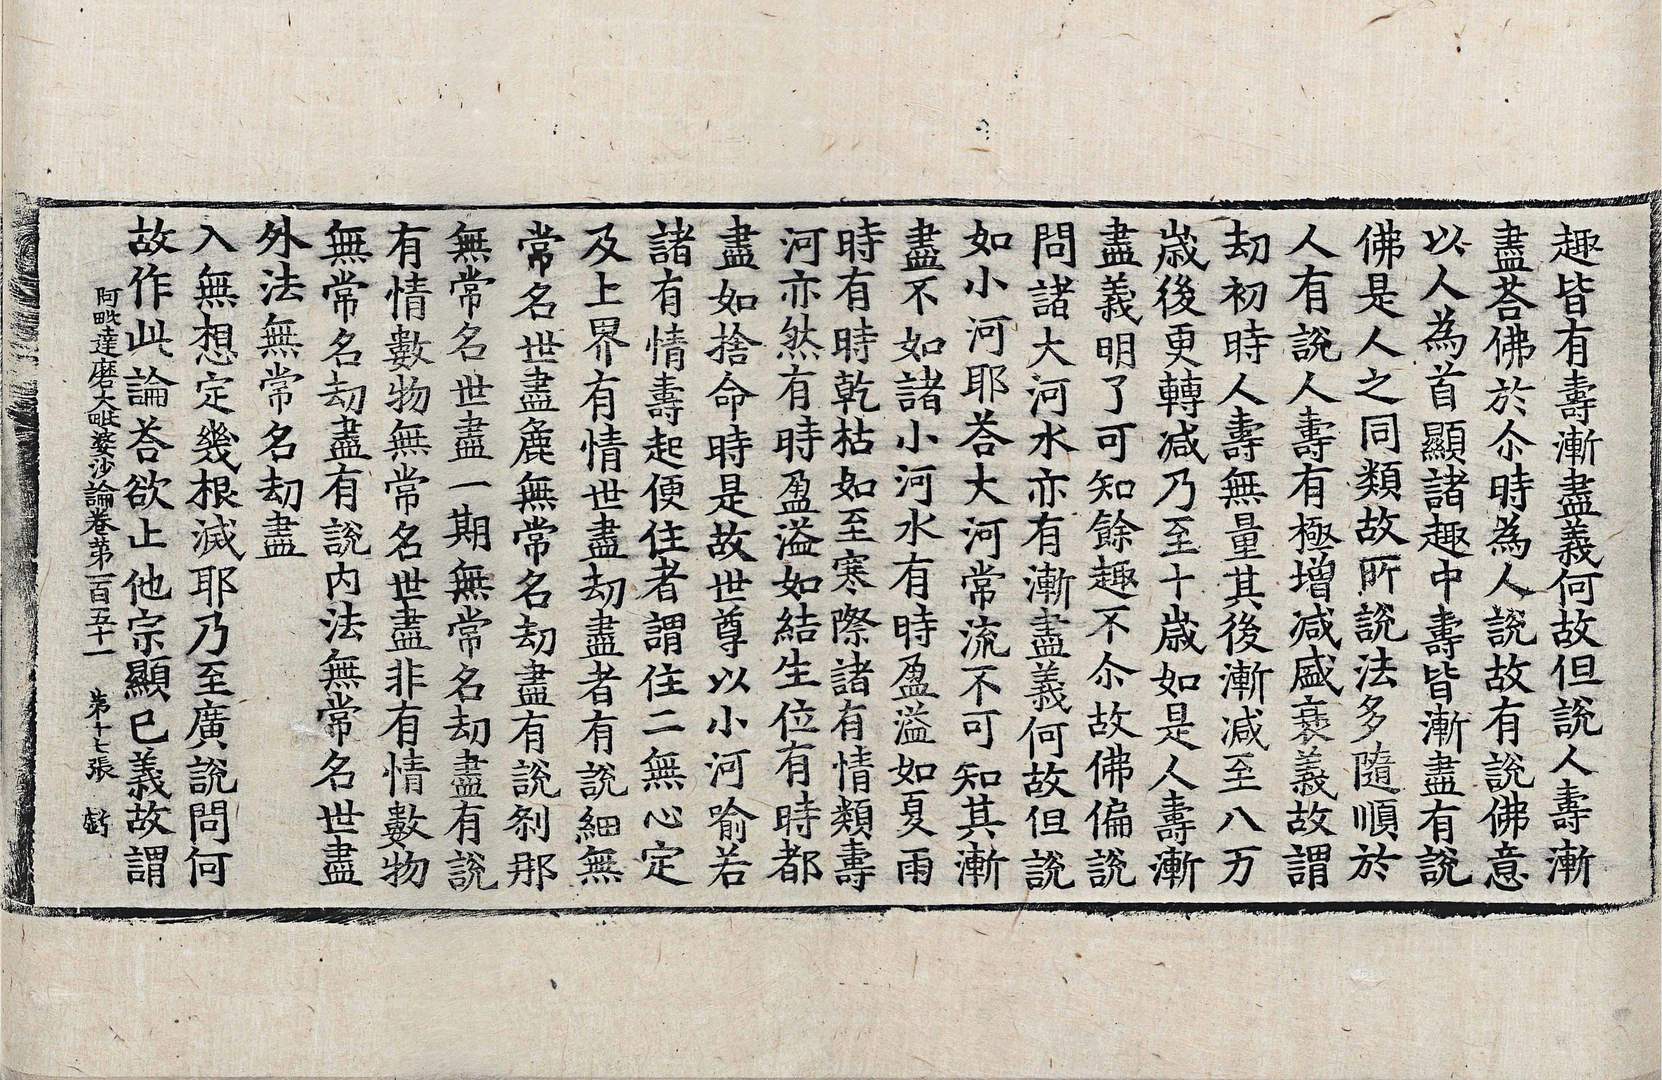 趣皆有壽漸盡義何故但說人壽漸
盡荅佛於尒時為人說故有說佛意
以人為首顯諸趣中壽皆漸盡有說
佛是人之同類故所說法多隨順於
人有說人壽有極增減盛衰義故謂
劫初時人壽無量其後漸減至八万
歲後更轉減乃至十歲如是人壽漸
盡義明了可知餘趣不尒故佛偏說
問諸大河水亦有漸盡義何故但說
如小河耶荅大河常流不可知其漸
盡不如諸小河水有時盈溢如夏雨
時有時乾枯如至寒際諸有情類壽
河亦然有時盈溢如結生位有時都
盡如捨命時是故世尊以小河喻若
諸有情壽起便住者謂住二無心定
及上界有情世盡劫盡者有說細無
常名世盡麁無常名劫盡有說刹那
無常名世盡一期無常名劫盡有說
有情數物無常名世盡非有情數物
無常名劫盡有說內法無常名世盡
外法無常名劫盡
入無想定幾根滅耶乃至廣說問何
故作此論荅欲止他宗顯己義故謂
阿毗達磨大毗婆沙論卷第一百五十一 第十七張 虧